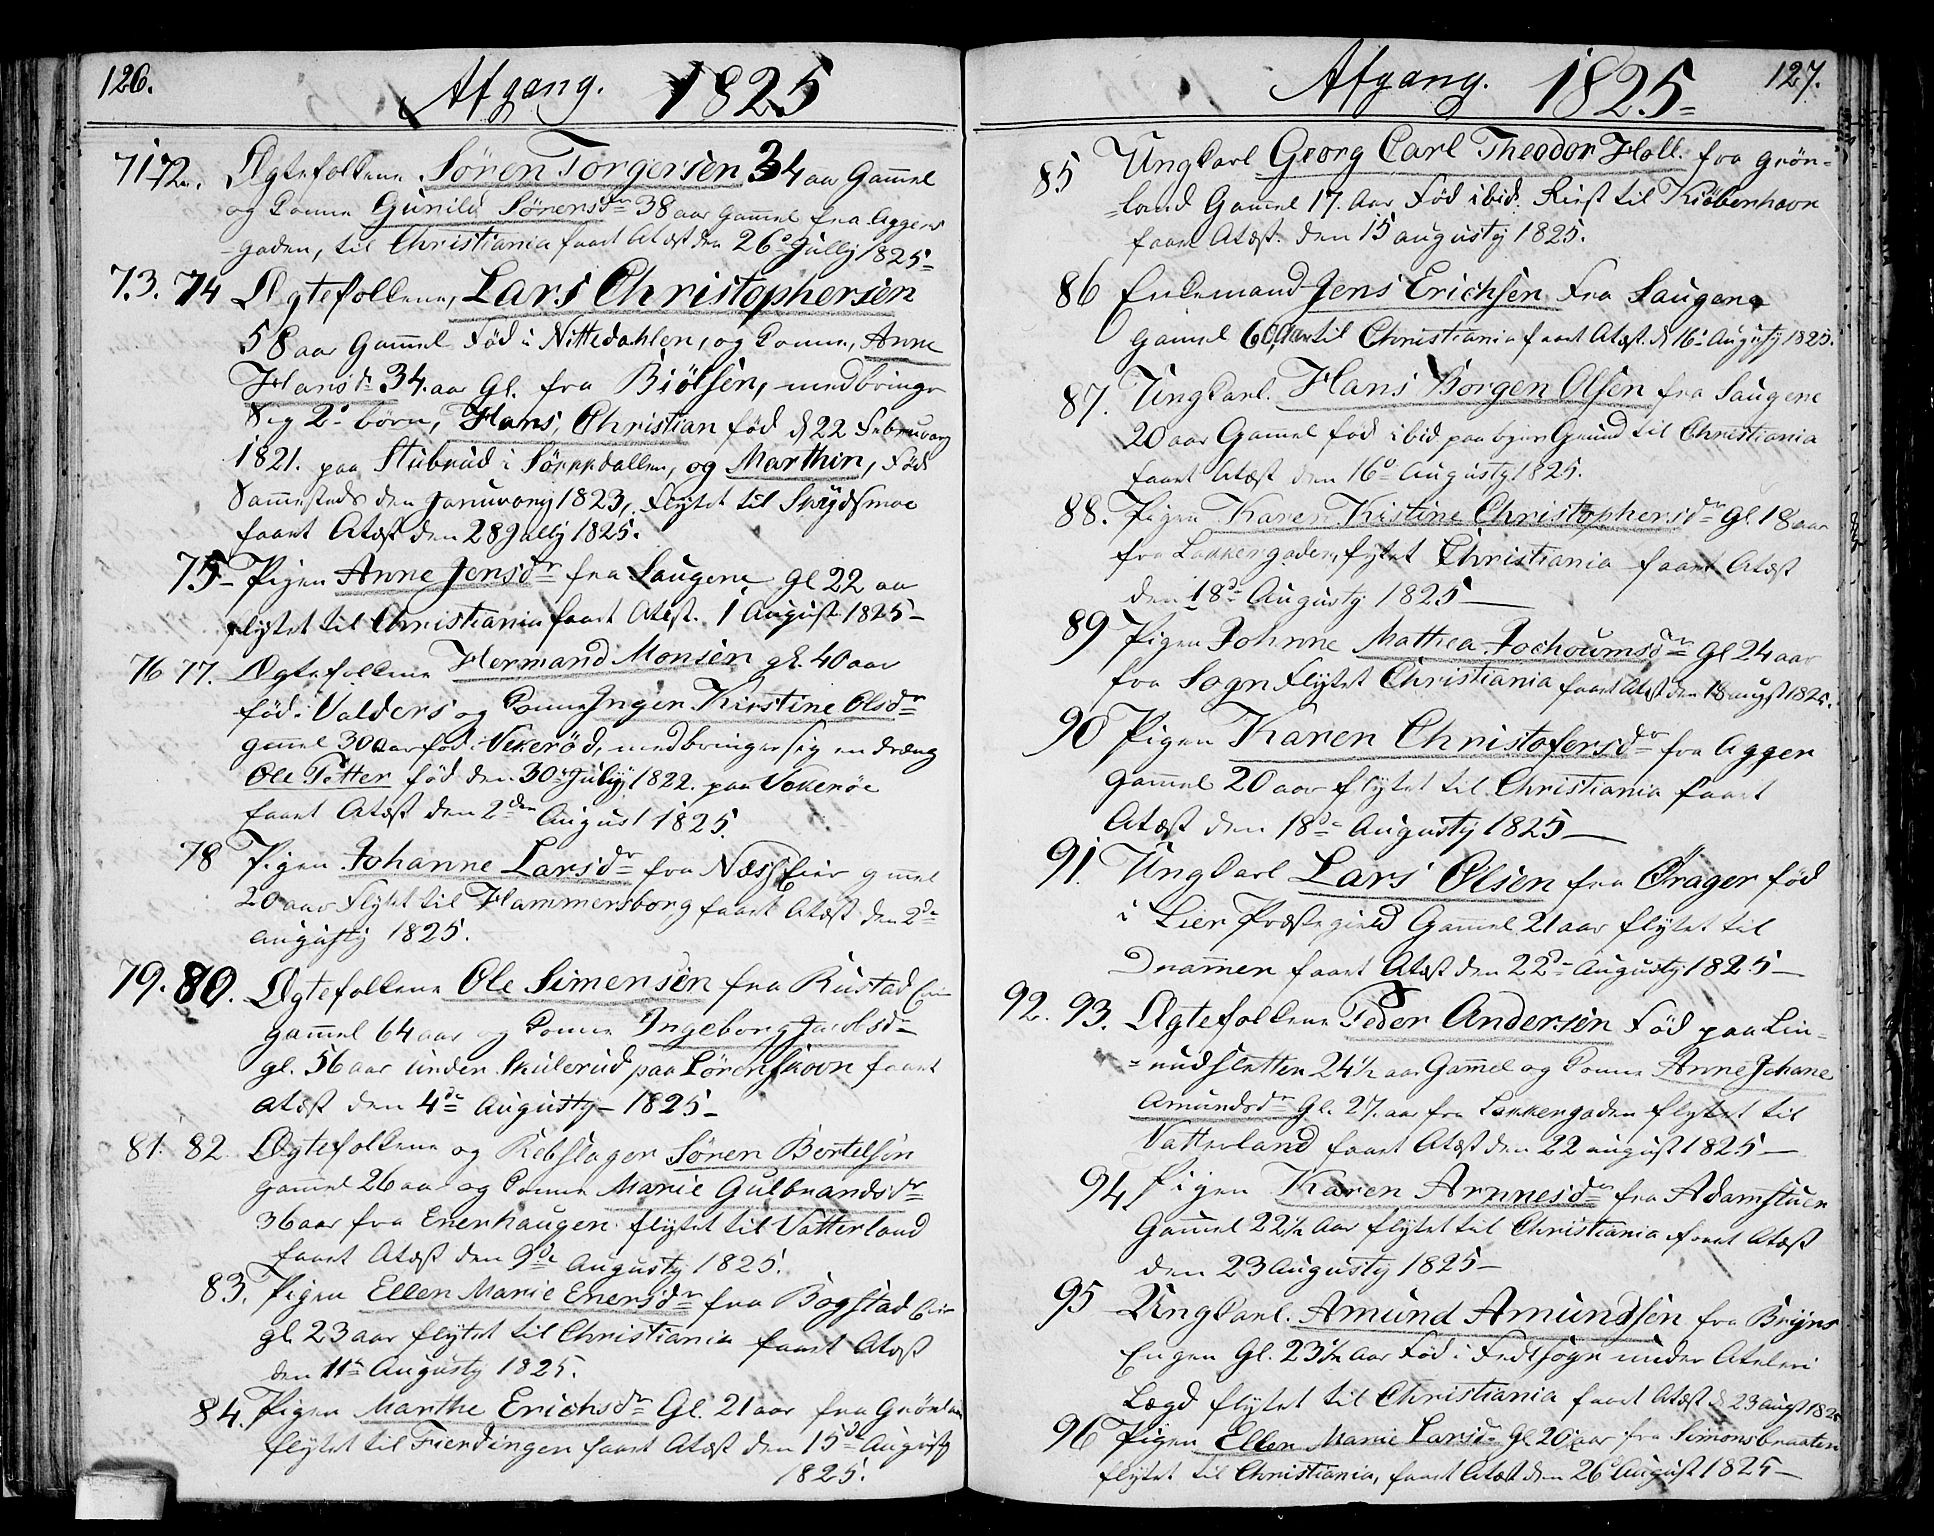 126. Afgang. 1825
71. 72. Ægtefolkene Søren Torgersen 34 aar Gammel
og Konne Gunild Sørensdr 38 aar Gammel fra Agger
gaden, til Christiania faaet Atæst den 26 Jullÿ 1825
73. 74 Ægtefolkene, Lars Christophersen
58 aar Gammel Fød i Nittedahlen, og Konne, Anne
Hansdr 34 aar Gl. fra Biölsen, medbringer
Sig 2 börn, Hans Christian fød d 22 Februarÿ
1821. paa Stubrud i Sörkedallen, og Marthin, Fød
Sammesteds den Januvarÿ 1823, Flÿtet til
faaet Atæst den 28 Jullÿ 1825.
75 Pigen Anne Jensdr fra Saugene Gl 22 aar
flÿtet til Christiania faaet Atest. 1 August 1825
76 77. Ægtefolkene Hermand Monsen gl. 40 aar
fød i Valders og Konne Inger Kirstine Olsdr
gmel 30 aar fød i Vekerød, medbringer sig en dræng
Ole Petter fød den 30 Julÿ 1822. paa Vekerøe
faaet Atæst den 2den August 1825.
78 Pigen Johanne Larsdr fra Næss Eier gmel
20 aar Flÿtet til Hammersborg faaet Atæst den 2de
Augustÿ 1825.
79. 80. Ægtefolkene Ole Simensen fra Rustad Eie
Gammel 64 aar og Konne Ingeborg Jacobsdr
gl. 56 aar under Skulerud paa Lörenskovn faaet
atæst den 4de Augustÿ 1825
81. 82. Ægtefolkene og Rebslager Søren Bertelsen
Gammel 26 aar og Konne Marie Gulbrandsdr
36 aar fra Enerhaugen flÿtet til Vatterland
faaet Atæst den 9de Augustÿ 1825.
83. Pigen Ellen Marie Enersdr fra Bogstad Eie
gl. 23 aar flÿtet til Christiania faaet Atæst
den 11te Augustÿ 1825.
84. Pigen Marthe Erichsdr Gl. 21 aar fra Grönland
flÿtet til Fierdingen faaet Atæst den 15de Augustÿ
1825.
Afgang. 1825 127.
85 Ungkarl Georg Carl Theodor Holl. fra Grön-
land Gammel 17. Aar Fød ibid. Reist til Kiöbenhavn
faaet Atæst. den 15 augustÿ 1825.
86 Enkemand Jens Erichsen Fra Saugene
Gammel 60 Aar til Christiania faaet Atæst. d 16 Augustÿ 1825.
87. Ungkarl. Hans Borgen Olsen fra Saugene
20 aar Gammel fød ibid paa Grund til Christiania
faaet Atæst den 16de Augustÿ 1825.
88. Pigen Karen Kistine Christophersdr Gl. 18 aar
fra Lakkergaden, flÿtet Christiania faaet Atæst
den 18de Augustÿ 1825
89 Pigen Johnne Mathea Jochoumsdr Gl 24 aar
fra Sogn Flÿtet Christiania faaet Atæst den 18 augst 1825.
90 Pigen Karen Christofersdr fra Agger
Gammel 20 aar flÿtet til Christiania faaet
Atæst den 18de Augustÿ 1825
91. Ungkarl Lars Olsen fra Ørager fød
i Lier Præstegield Gammel 21 aar flÿtet til
Drammen faaet Atæst den 22de Augustÿ 1825
92. 93. Ægtefolkene Peder Andersen Fød paa Lin-
rudsletten 24 1/2 aar Gammel og Konne Anne Johane
Amundsdr Gl. 27. aar fra Lakkergaden flÿtet til
Vatterland faaet Atæst den 22 august 1825
94. Pigen Karen Arnnesdr fra Adamstuen
Gammel 22 1/2 Aar flÿtet til Christiania faaet Atæst
den 23 Augustÿ 1825
95 Ungkarl. Amund Amundsen fra Brÿns
Engen Gl. 23 1/2 Aar Fød i Fedtsogn under
Lægd flÿtet til Christiania faaet Atæst d 23 augst 1825
96 Pigen Ellen Marie Larsdr Gl 20 aar fra Simonsbraaten
flÿtet til Christiania, faaet Atæst den 26 August 1825